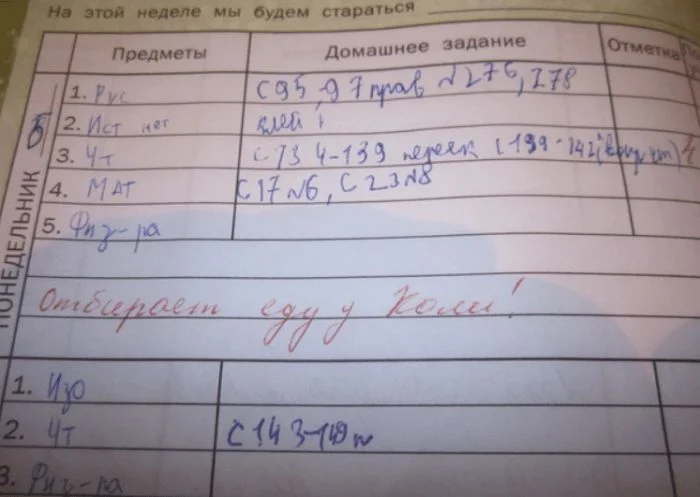 На этой неделе мы будем стараться
Предметы Домашнее задание Отметка
ПОНЕДЕЛЬНИК
1. Рус С 95, 97 прав №276, 278
2. Ист нет клей
3. Чт С 134-139 переск С 139-142
4. МАТ С 17 №6, С 23 №8
5. Физ-ра
Отбирает еду у Коли!
1. Изо
2. Чт С 143-149
3. Физ-ра